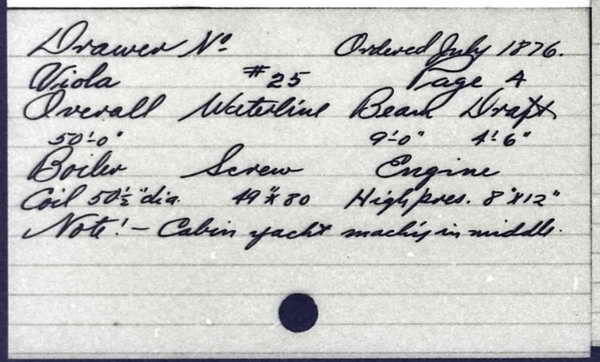 Drawer No. Ordered July 1876.
Viola #25 Page 4
Overall Waterline Beam Draft
50'-0" 9'-0" 4'-6"
Boiler Screw Engine
Coil 50½" dia. 49" x 80 High pres. 8" x 12"
Note! - Cabin yacht mach'y in middle.